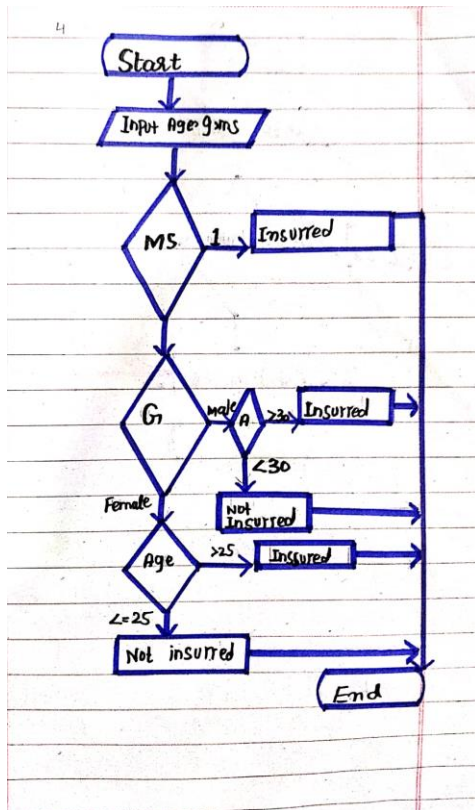 4
Start
Input Age, g, ms
MS 1 Insurred
G Male A >30 Insurred
<30
Not
Insurred
Female
Age >25 Inssured
<=25
Not insurred
End